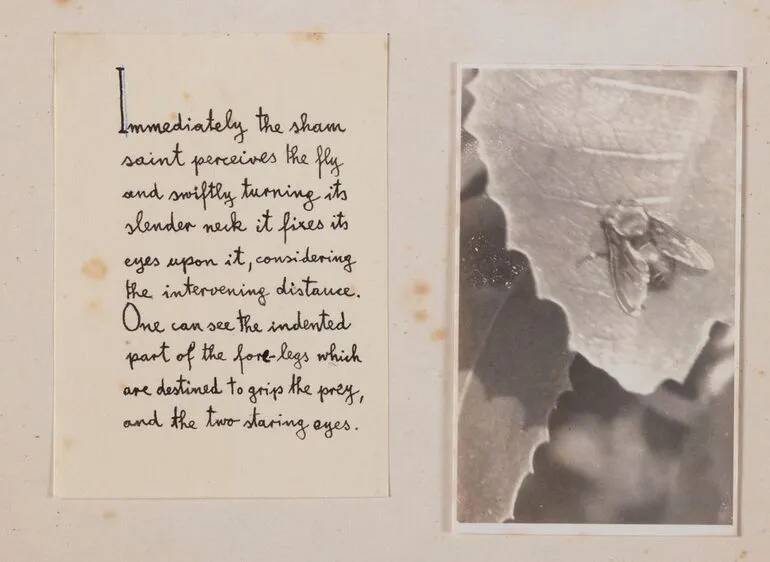 Immediately the sham
saint perceives the fly
and swiftly turning its
slender neck it fixes its
eyes upon it, considering
the intervening distance.
One can see the indented
part of the fore-legs which
are destined to grip the prey,
and the two staring eyes.